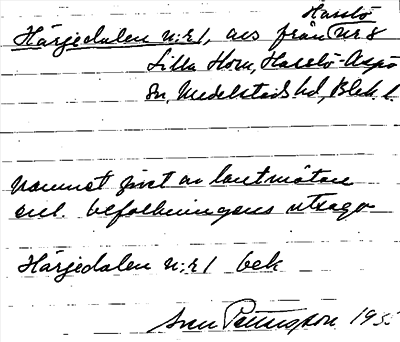 Hasslö
Härjedalen n:r 1, avs från nr 8
Lilla Horn, Hasslö-Aspö
sn, Medelstads hd, Blek. l.
Namnet givet av lantmätare
enl. befolkningens utsago
Härjedalen n:r 1 bek
Sven 195